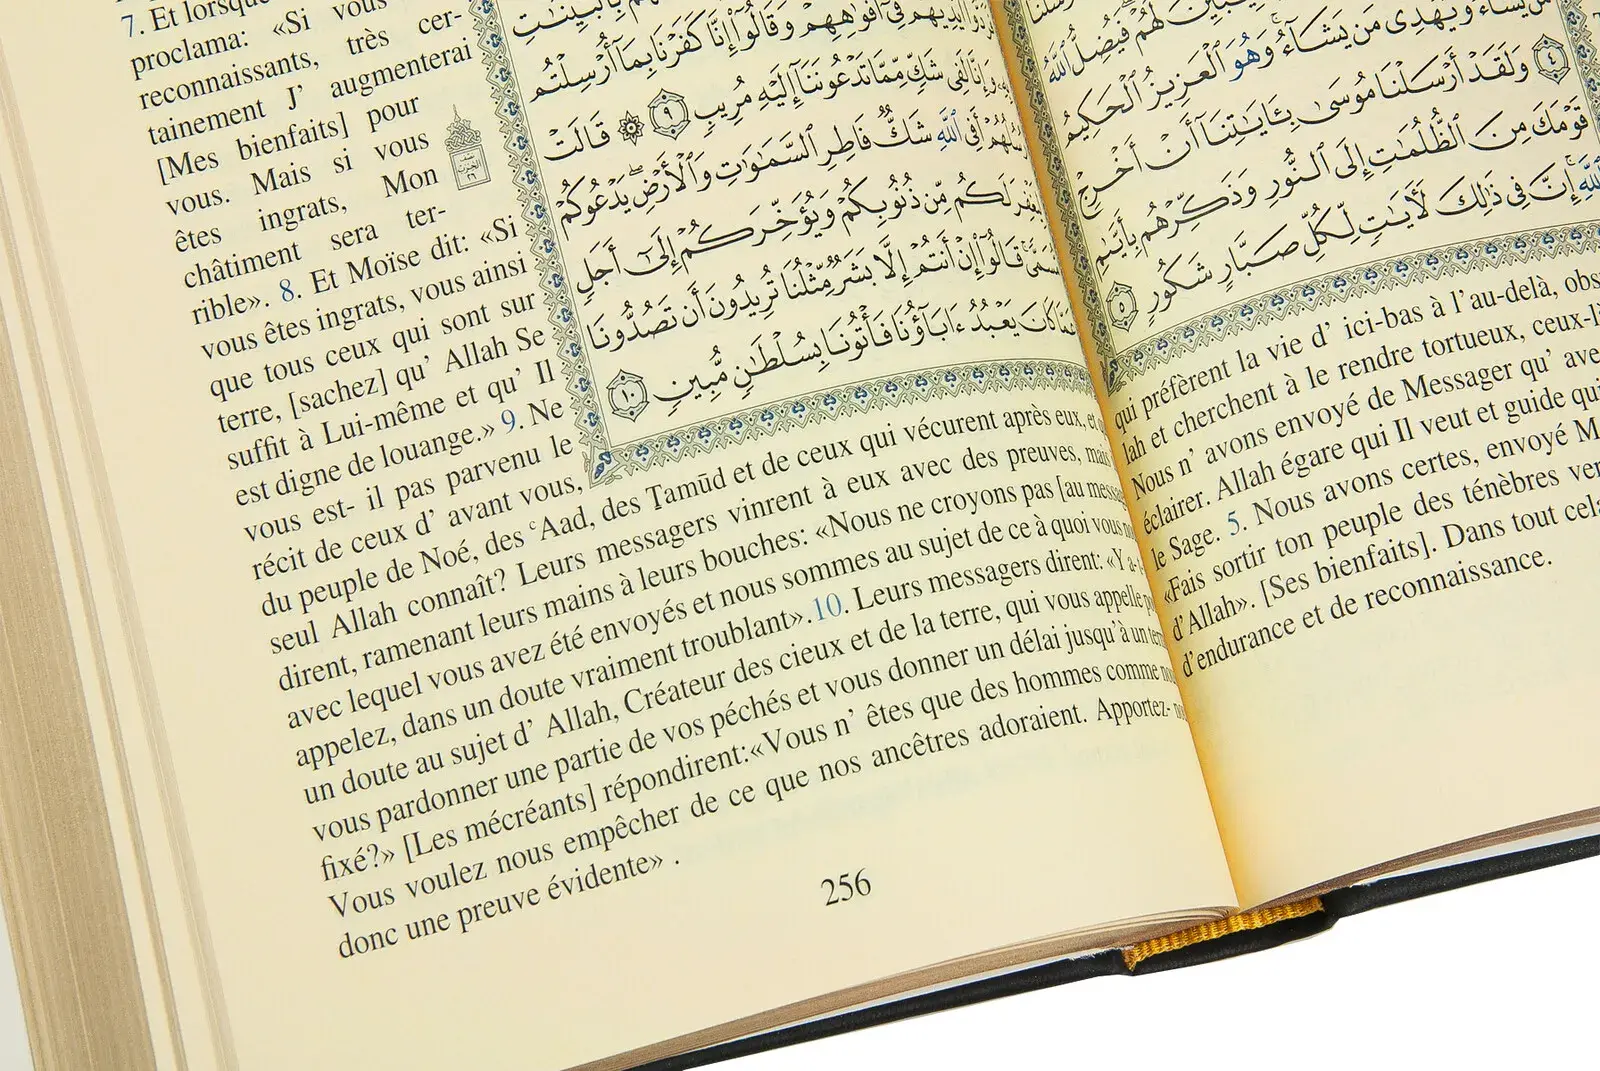 لَهُمْ فَيُضِلُّ ٱللَّهُ
مَن يَشَآءُ وَيَهْدِى مَن يَشَآءُ وَهُوَ ٱلْعَزِيزُ ٱلْحَكِيمُ
٤ وَلَقَدْ أَرْسَلْنَا مُوسَىٰ بِـَٔايَٰتِنَآ أَنْ أَخْرِجْ
قَوْمَكَ مِنَ ٱلظُّلُمَٰتِ إِلَى ٱلنُّورِ وَذَكِّرْهُم بِأَيَّىٰمِ
ٱللَّهِ إِنَّ فِى ذَٰلِكَ لَأٓيَٰتٍ لِّكُلِّ صَبَّارٍ شَكُورٍ ٥
qui préfèrent la vie d' ici-bas à l'au-delà,
et cherchent à le rendre tortueux,
Nous n' avons envoyé de Messager qu'
éclairer. Allah égare qui Il veut et guide
le Sage. 5. Nous avons certes, envoyé
«Fais sortir ton peuple des ténèbres
d'Allah». [Ses bienfaits]. Dans tout cela
d'endurance et de reconnaissance.
أَفْوَٰهِهِمْ وَقَالُوٓا۟ إِنَّا كَفَرْنَا بِمَآ أُرْسِلْتُم
وَإِنَّا لَفِى شَكٍّ مِّمَّا تَدْعُونَنَآ إِلَيْهِ مُرِيبٍ ٩ ۞ قَالَتْ
رُسُلُهُمْ أَفِى ٱللَّهِ شَكٌّ فَاطِرِ ٱلسَّمَٰوَٰتِ وَٱلْأَرْضِ يَدْعُوكُمْ
لَكُم مِّن ذُنُوبِكُمْ وَيُؤَخِّرَكُمْ إِلَىٰٓ أَجَلٍ
مُّسَمًّى قَالُوٓا۟ إِنْ أَنتُمْ إِلَّا بَشَرٌ مِّثْلُنَا تُرِيدُونَ أَن تَصُدُّونَا
كَانَ يَعْبُدُ ءَابَآؤُنَا فَأْتُونَا بِسُلْطَٰنٍ مُّبِينٍ ١٠
7. Et lorsque
proclama: «Si vous
reconnaissants, très cer-
tainement J' augmenterai
[Mes bienfaits] pour
vous. Mais si vous
êtes ingrats, Mon
châtiment sera ter-
rible». 8. Et Moïse dit: «Si
vous êtes ingrats, vous ainsi
que tous ceux qui sont sur
terre, [sachez] qu' Allah Se
suffit à Lui-même et qu' Il
est digne de louange.» 9. Ne
vous est- il pas parvenu le
récit de ceux d' avant vous,
du peuple de Noé, des ʿAad, des Ṯamūd et de ceux qui vécurent après eux, et
seul Allah connaît? Leurs messagers vinrent à eux avec des preuves, mais
dirent, ramenant leurs mains à leurs bouches: «Nous ne croyons pas [au
avec lequel vous avez été envoyés et nous sommes au sujet de ce à quoi vous
appelez, dans un doute vraiment troublant».10. Leurs messagers dirent: «Y a-t-
un doute au sujet d' Allah, Créateur des cieux et de la terre, qui vous appelle
vous pardonner une partie de vos péchés et vous donner un délai jusqu'à un
fixé?» [Les mécréants] répondirent:«Vous n' êtes que des hommes comme
Vous voulez nous empêcher de ce que nos ancêtres adoraient. Apportez-
donc une preuve évidente» .
256